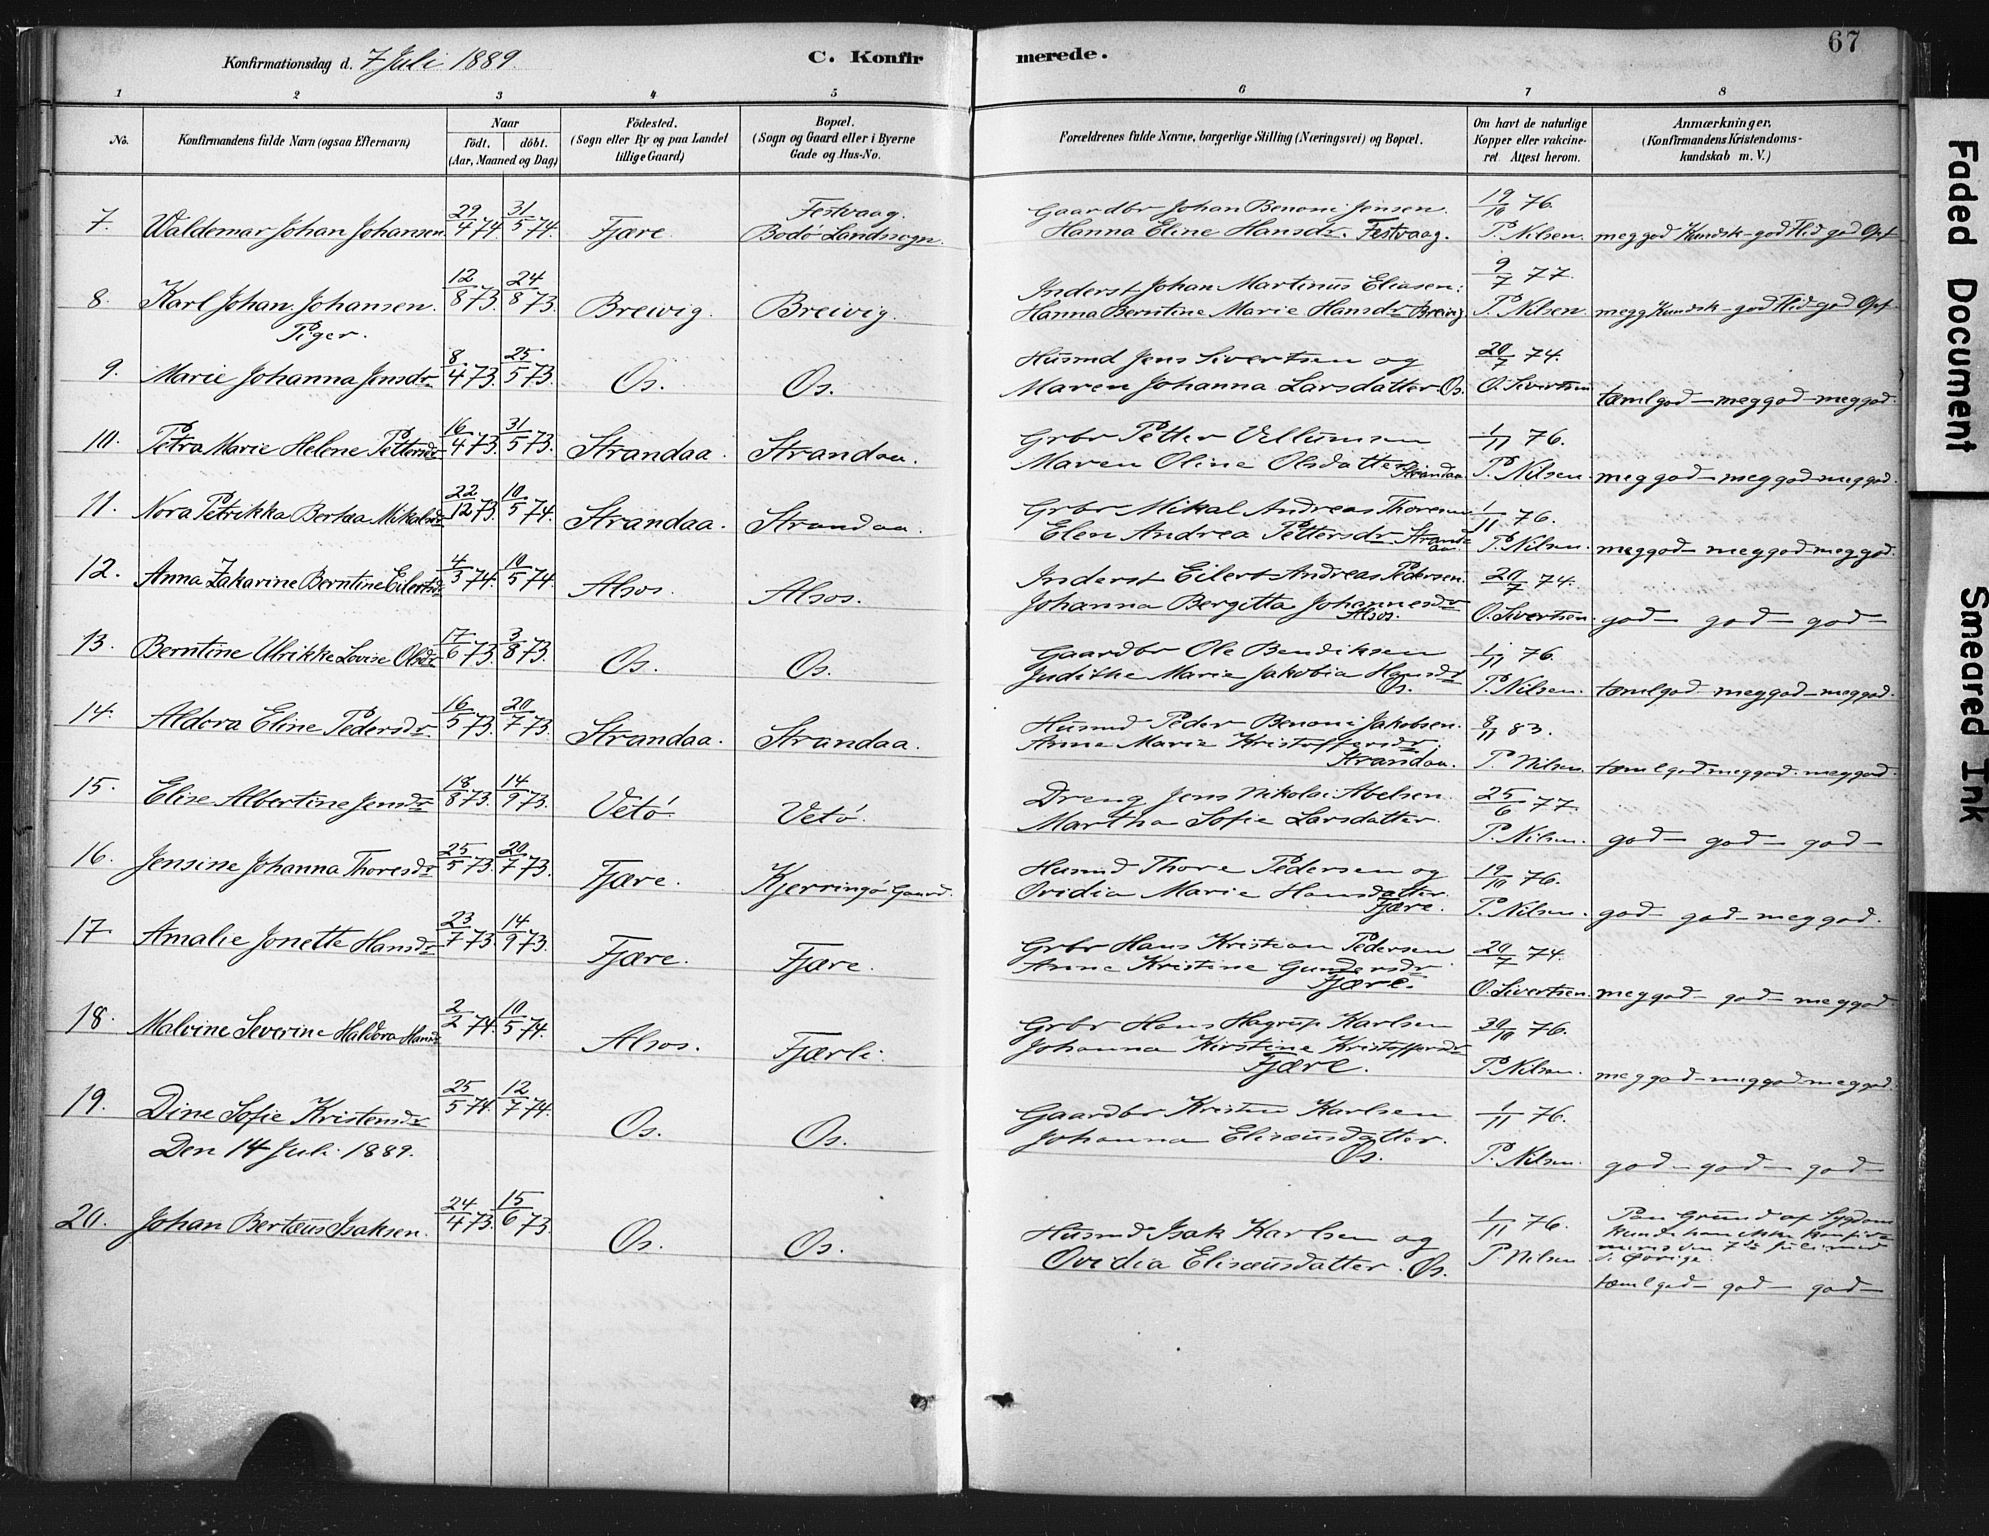 Konfirmationsdag d. 7 Juli 1889.
C. Konfirmerede.
67
1 2 3 4 5 6 7 8
No.
Konfirmandens fulde Navn (ogsaa Efternavn)
Naar
født. døbt.
(Aar, Maaned og Dag)
Fødested.
(Sogn eller By og paa Landet
tillige Gaard)
Bopæl.
(Sogn og Gaard eller i Byerne
Gade og Hus-No.
Forældrenes fulde Navne, borgerlige Stilling (Næringsvei) og Bopæl.
Om havt de naturlige
Kopper eller vakcine-
ret. Attest herom.
Anmærkninger,
(Konfirmandens Kristendoms-
kundskab m. V.)
7. Waldemar Johan Johansen 29/4 74 31/5 74. Fjære. Festvaag. Bodø Landssogn.
Gaardbr Johan Benoni Jensen. 19/10 76.
Hanna Eline Hansdr. Festvaag. P. Nilsen. meg god Kundsk- god Flid god Opf
8. Karl Johan Johansen. 12/8 73. 24/8 73. Breivig. Breivig.
Inderst Johan Martinus Eliasen. 9/7 77
Hanna Berntine Marie Hansdr Breivig P. Nilsen megg Kundsk- god Flid god Opf
Piger.
9. Marie Johanna Jensdr 8/4 73. 25/5 73. Os. Os.
Husmd Jens Sivertsen og 20/7 74.
Maren Johanna Larsdatter Os. O. Sivertsen tæmlgod- meggod- meggod.
10. Petra Marie Helene Pettersdr 16/4 73. 31/5 73. Strandaa. Strandaa.
Grbr Petter Villumsen 1/11 76.
Maren Oline Olsdatter Strandaa. P. Nilsen. meggod- meggod- meggod.
11. Nora Petrikka Bertaa Mikalsdr 22/12 73. 10/5 74. Strandaa. Strandaa.
Grbr Mikal Andreas Thoresen 1/11 76.
Elen Andrea Pettersdr Strandaa. P. Nilsen. meggod- meggod- meggod.
12. Anna Zakarine Berntine Eilertsdr 4/3 74. 10/5 74. Alsos. Alsos.
Inderst Eilert Andreas Pedersen. 20/7 74.
Johanna Bergitta Johannesdr Alsos. O. Sivertsen. god- god- god-
13. Berntine Ulrikke Lovise Olsdr 17/6 73. 3/8 73. Os. Os.
Gaardbr Ole Bendiksen 1/11 76.
Judithe Marie Jakobia Hansdr Os. P. Nilsen. tæmlgod- meggod- meggod.
14. Aldora Eline Pedersdr. 16/5 73. 20/7 73. Strandaa. Strandaa.
Husmd Peder Benoni Jakobsen. 8/11 83.
Anne Marie Kristoffersdr. Strandaa. P. Nilsen. tæmlgod meggod- meggod.
15. Elise Albertine Jensdr 18/8 73. 14/9 73. Vetø. Vetø.
Dreng Jens Nikolai Abelsen. 25/6 77.
Martha Sofie Larsdatter. P. Nilsen. god- god- god-
16. Jensine Johanna Thoresdr 25/5 73. 20/7 73. Fjære. Kjerringø Gaard.
Husmd Thore Pedersen og 19/10 76.
Ovidia Marie Hansdatter. Fjære. P. Nilsen. god- god- meggod.
17. Amalie Jonette Hansdr 23/7 73. 14/9 73. Fjære. Fjære.
Grbr Hans Kristian Pedersen 20/7 74.
Anne Kristine Gundersdr Fjære. O. Sivertsen. meggod- god- meggod
18. Malvine Severine Haldora Hansdr 2/2 74. 10/5 74. Alsos. Fjærli.
Grbr Hans Hagrup Karlsen 30/10 76.
Johanna Kirstine Kristoffersdr Fjære. P. Nilsen. meggod- meggod meggod.
19. Dine Sofie Kristensdr 25/5 74. 12/7 74. Os. Os.
Gaardbr Kristen Karlsen 1/11 76.
Johanna Elisæusdatter. Os. P. Nilsen. god- god- god-
Den 14 Juli 1889.
20. Johan Bertæus Isaksen. 24/4 73. 15/6 73. Os. Os.
Husmd Isak Karlsen og 1/11 76.
Ovidia Elisæusdatter. Os. P. Nilsen
Paa Grund af Sygdom
kunde han ikke konfir-
meres den 7de Juli med
de Øvrige.
tæmlgod- god- god-
Faded Document
Smeared Ink